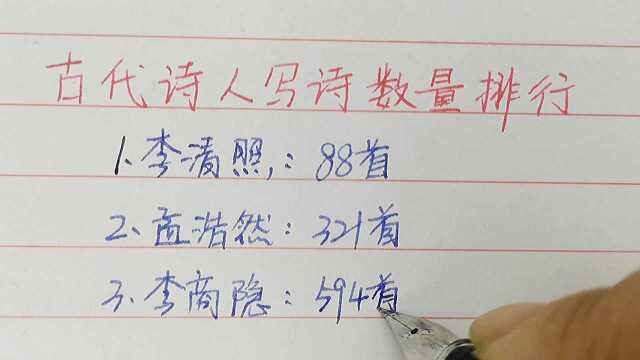 古代诗人写诗数量排行
1、李清照，：88首
2、孟浩然：321首
3、李商隐：594首